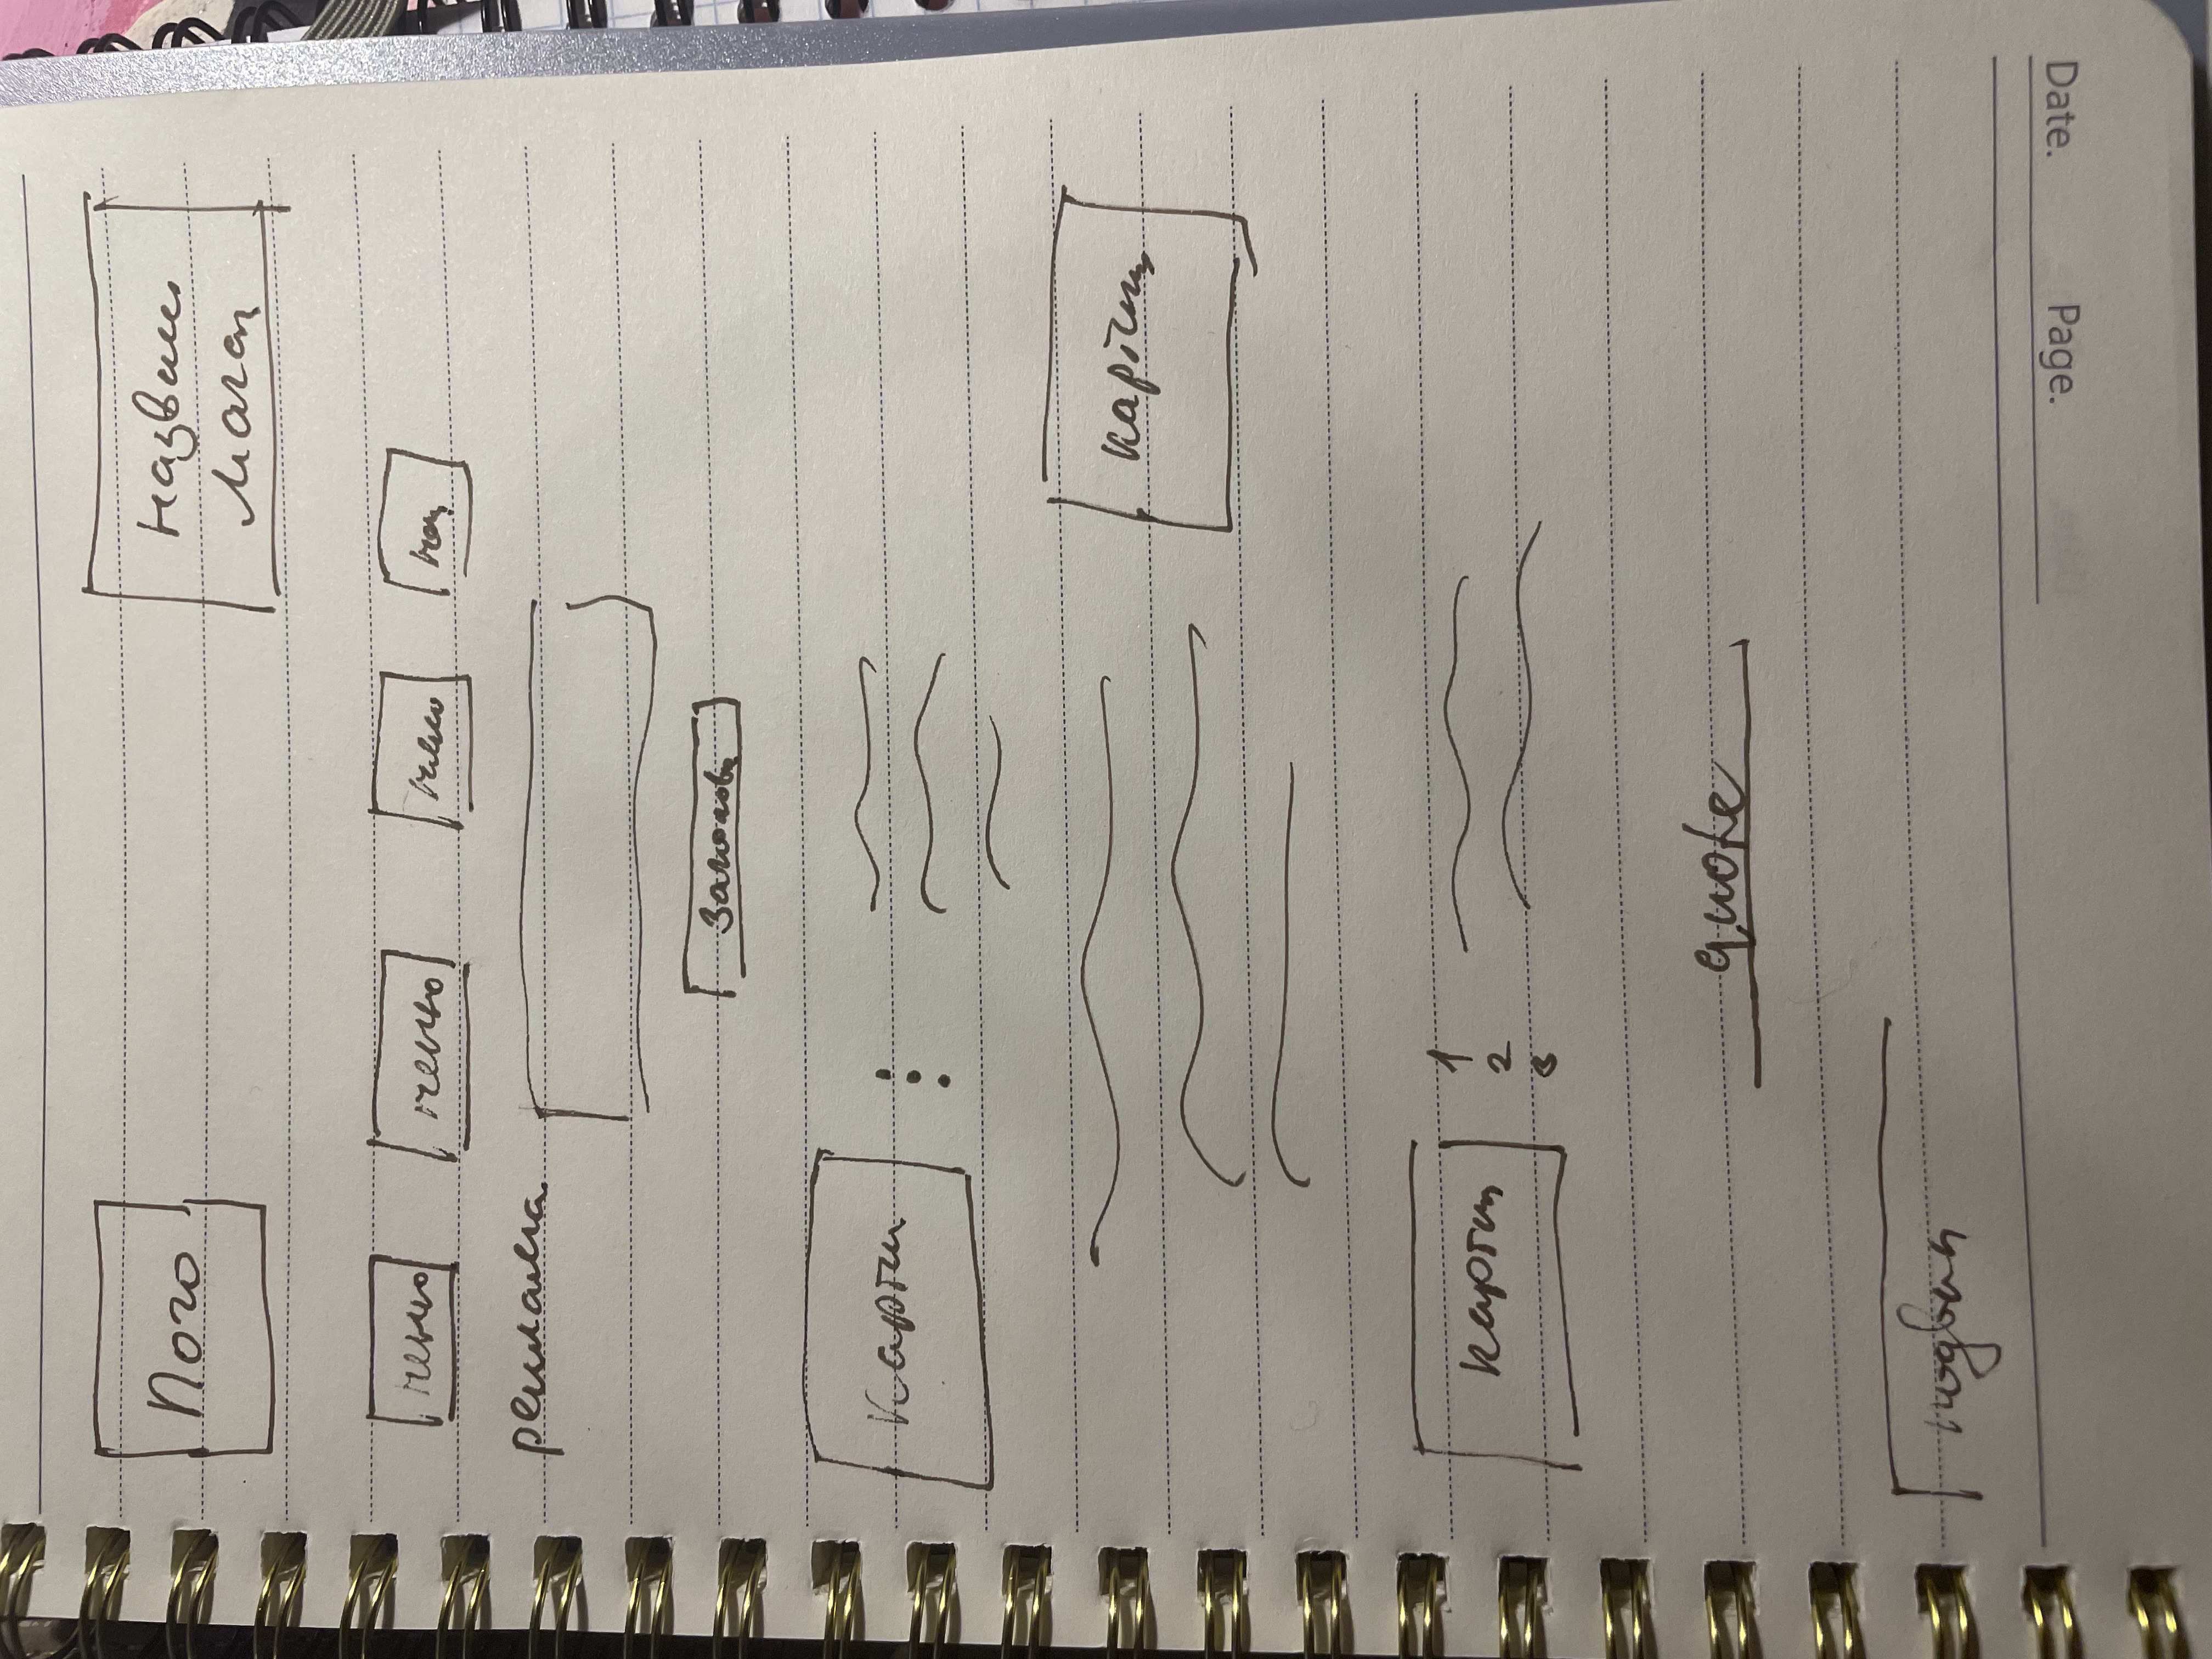 Лого
назван
магаз
меню
меню
меню
мен
реклама
Заголовок
карти
картин
карти
1
2
3
quote
подвал
Page.
Date.